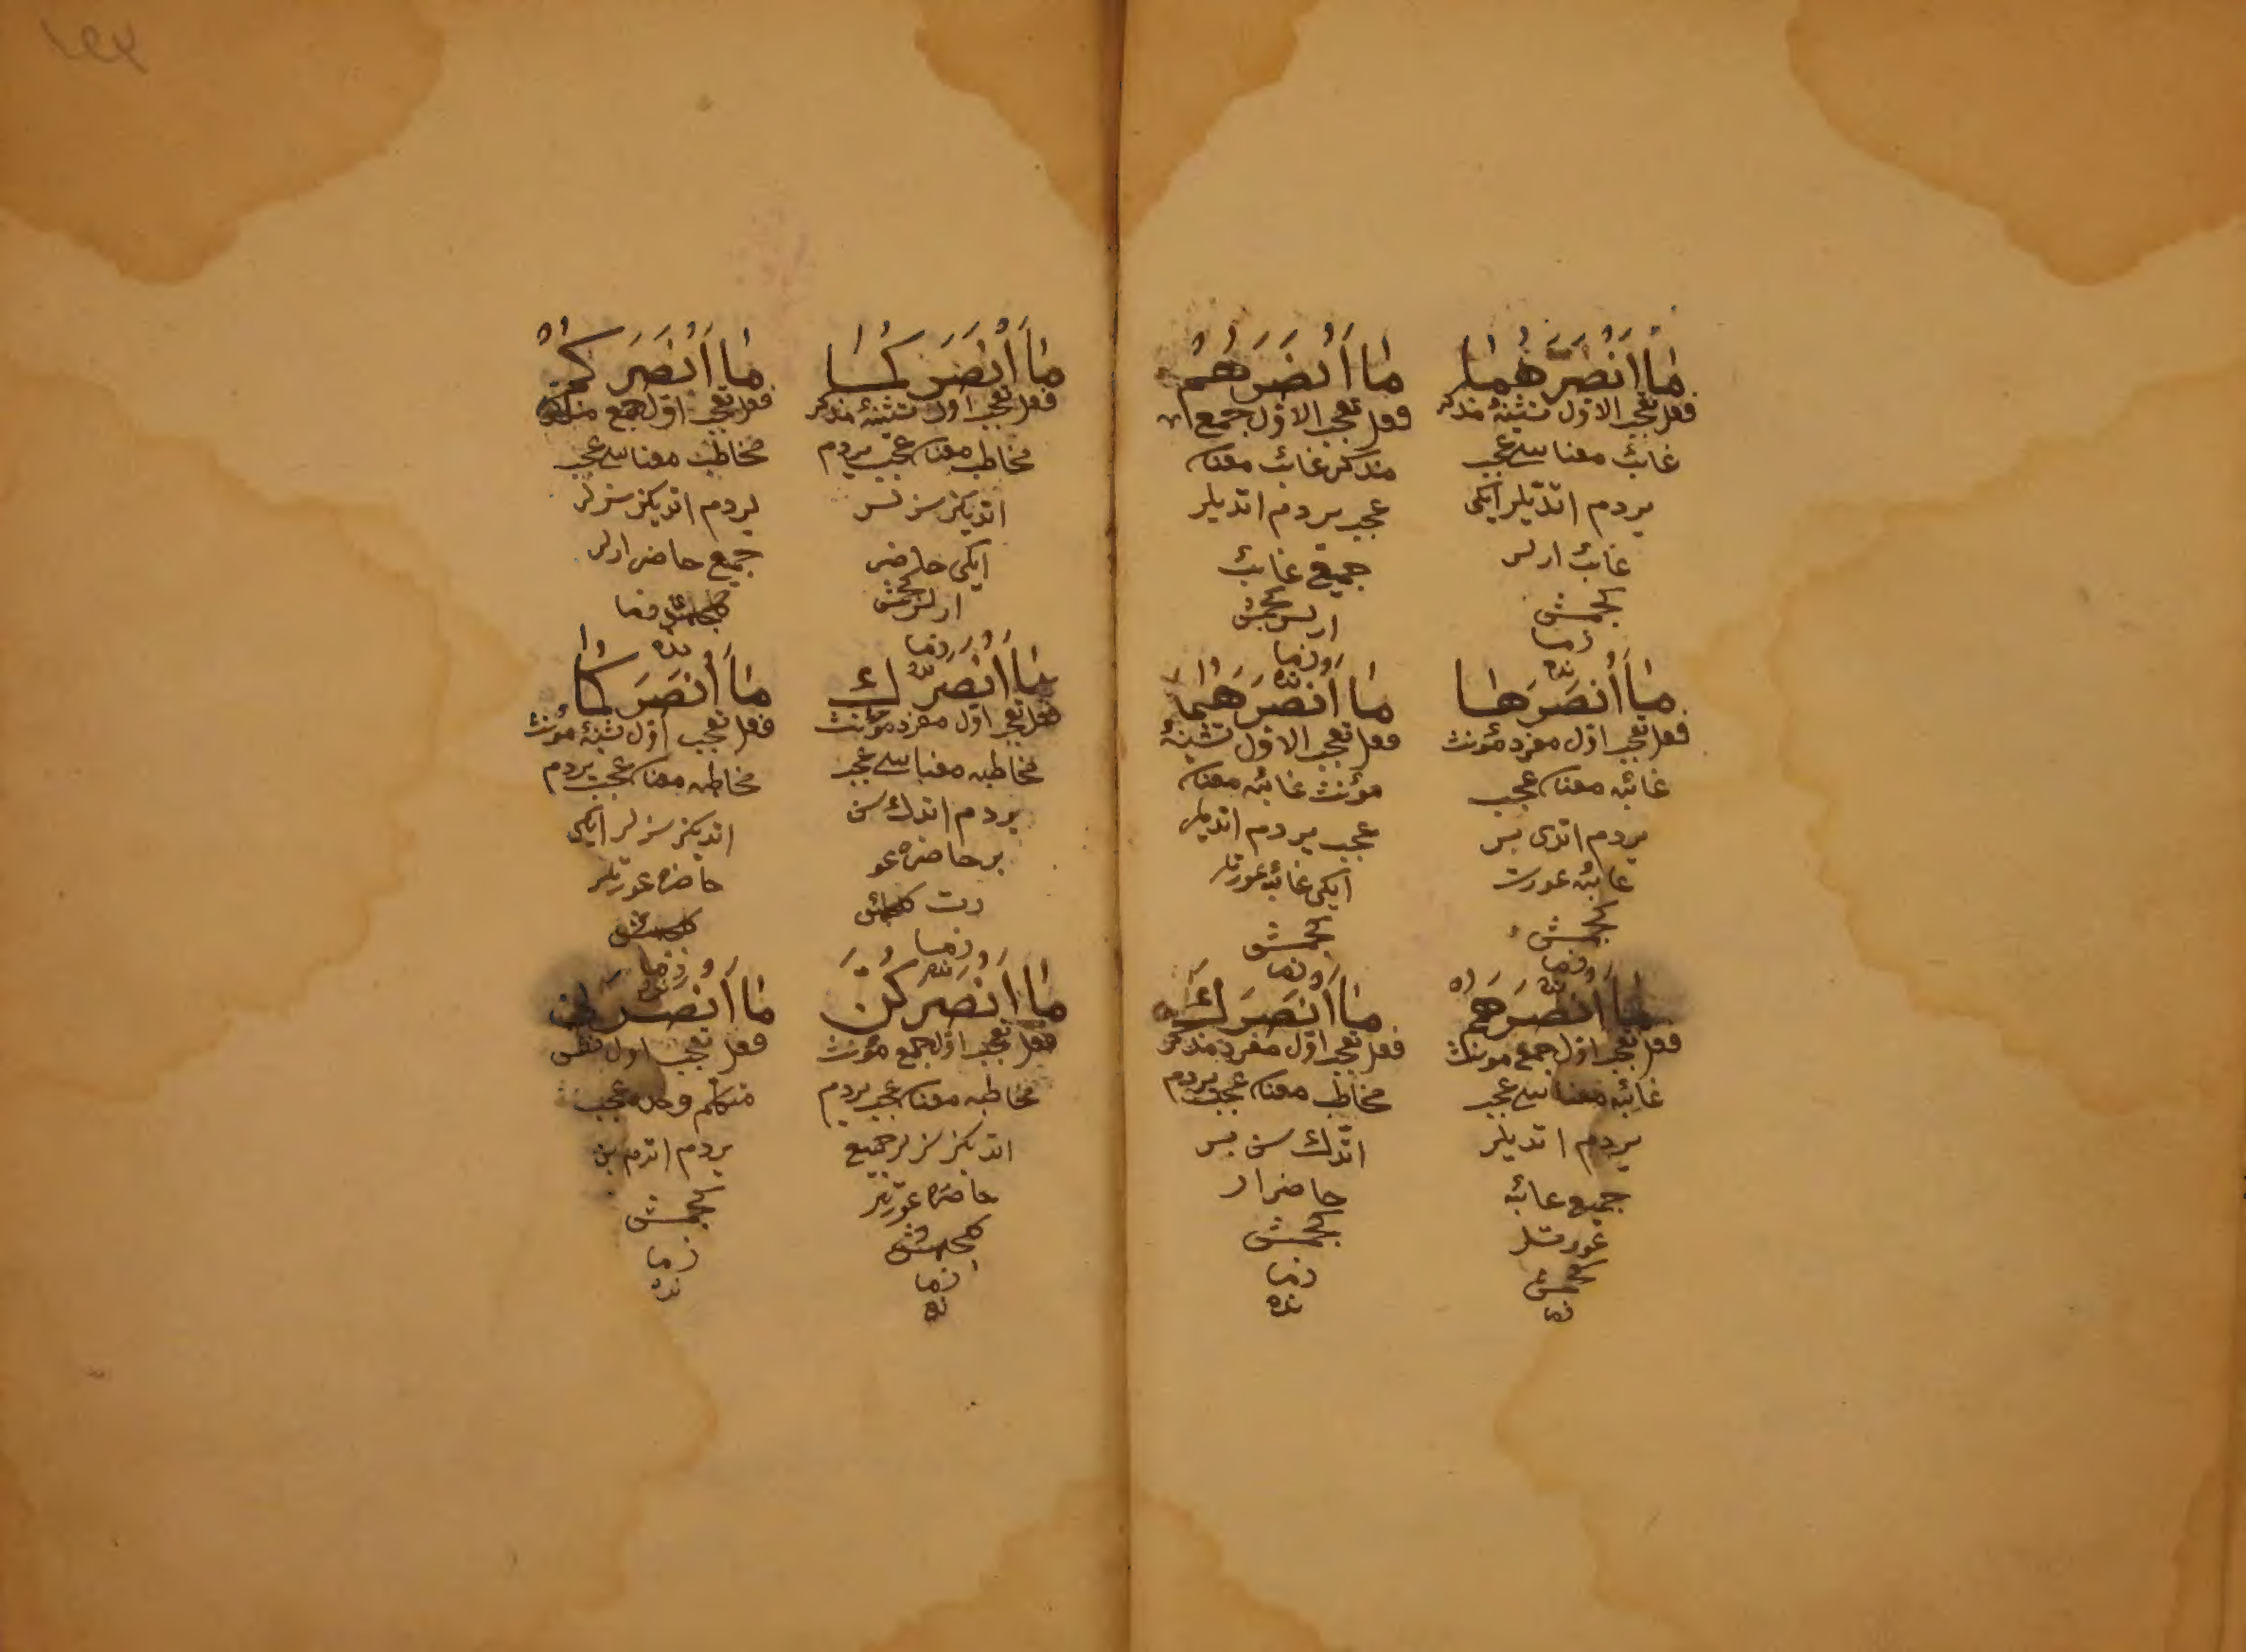 مَا أَنْصَرَهُمَا
فعل تعجب الاول تثنيۀ مذكر
غائب معناسى عجب
يردم اتديلر ايكى
غائب ارلر
كجمش
زما
نده
مَا أَنْصَرَهُمْ
فعل تعجب الاول جمع
مذكر غائب معناسى
عجب يردم اتديلر
جميع غائب
ارلر كجمش
زما
نده
مَا أَنْصَرَهَا
فعل تعجب اول مفرد مؤنث
غائبه معناسى عجب
يردم اتدى بر
غائبه عورت
كجمش
زما
نده
مَا أَنْصَرَهُمَا
فعل تعجب الاول تثنيۀ
مؤنث غائبه معناسى
عجب يردم اتديلر
ايكى غائبه عورتلر
كجمش
زما
مَا أَنْصَرَهُنَّ
فعل تعجب اول جمع مونث
غائبه معناسى عجب
يردم اتديلر
جميع غائبه
عورتلر
كجمش
زما
مَا أَنْصَرَكَ
فعل تعجب اول مفرد مذكر
مخاطب معناسى عجب يردم
اتدك سن بر
حاضر ار
كجمش
زما
نده
مَا أَنْصَرَكُمَا
فعل تعجب اول تثنيۀ مذكر
مخاطب معناسى عجب يردم
اتديكز سزلر
ايكى حاضر
ارلر كجمش
زما
نده
مَا أَنْصَرَكُمْ
فعل تعجب اول جمع مذكر
مخاطب معناسى عجب
يردم اتديكز سزلر
جميع حاضر ارلر
كلجمش زما
نده
مَا أَنْصَرَكِ
فعل تعجب اول مفرد مؤنث
مخاطبه معناسى عجب
يردم اتدك سن
بر حاضره عو
رت كلجمش
زما
نده
مَا أَنْصَرَكُمَا
فعل تعجب اول تثنيۀ مؤنث
مخاطبه معناسى عجب يردم
اتديكز سزلر ايكى
حاضره عورتلر
كلجمش
زما
نده
مَا أَنْصَرَكُنَّ
فعل تعجب اول جمع مؤنث
مخاطبه معناسى عجب يردم
اتديكز سزلر جميع
حاضره عورتلر
كلجمش
زما
نده
مَا أَنْصَرَنِى
فعل تعجب اول نفس
متكلم وحده عجب
يردم اتدم بن
كجمش
زما
نده